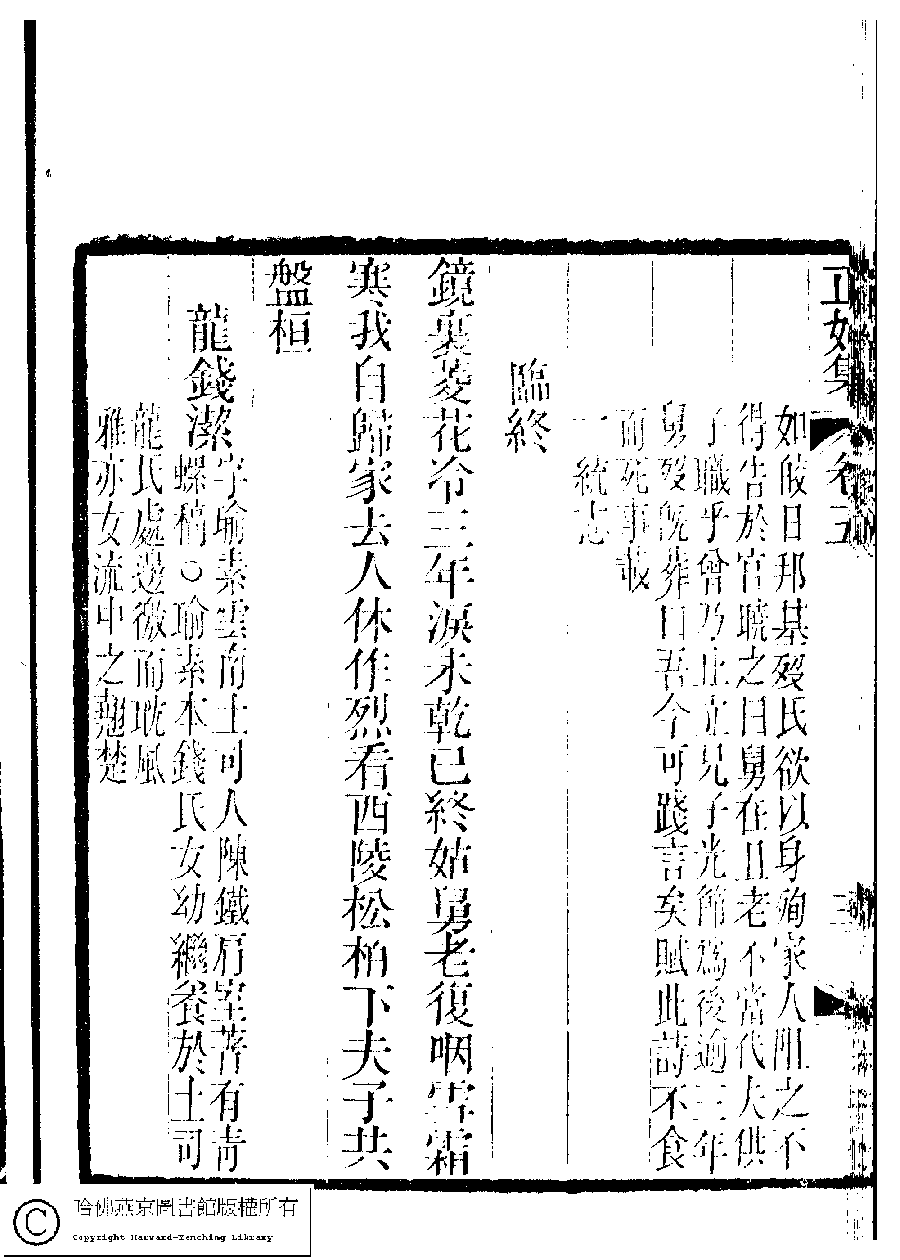 正始集 卷五 三
如皎日邦基歿氏欲以身殉家人阻之不
得告於官曉之曰舅在且老不當代夫供
子職乎曾乃止立兄子光節為後逾三年
舅歿既葬曰吾今可踐言矣賦此詩不食
而死事載
一統志
臨終
鏡裏菱花冷三年淚未乾已終姑舅老復咽雪霜
寒我自歸家去人休作烈看西陵松柏下夫子共
盤桓
龍錢潔字喻素雲南土司人陳鐵肩室著有青
螺稿○喻素本錢氏女幼繼養於土司
龍氏處邊徼而耽風
雅亦女流中之翹楚
哈佛燕京圖書館版權所有
Copyright Harvard-Yenching Library